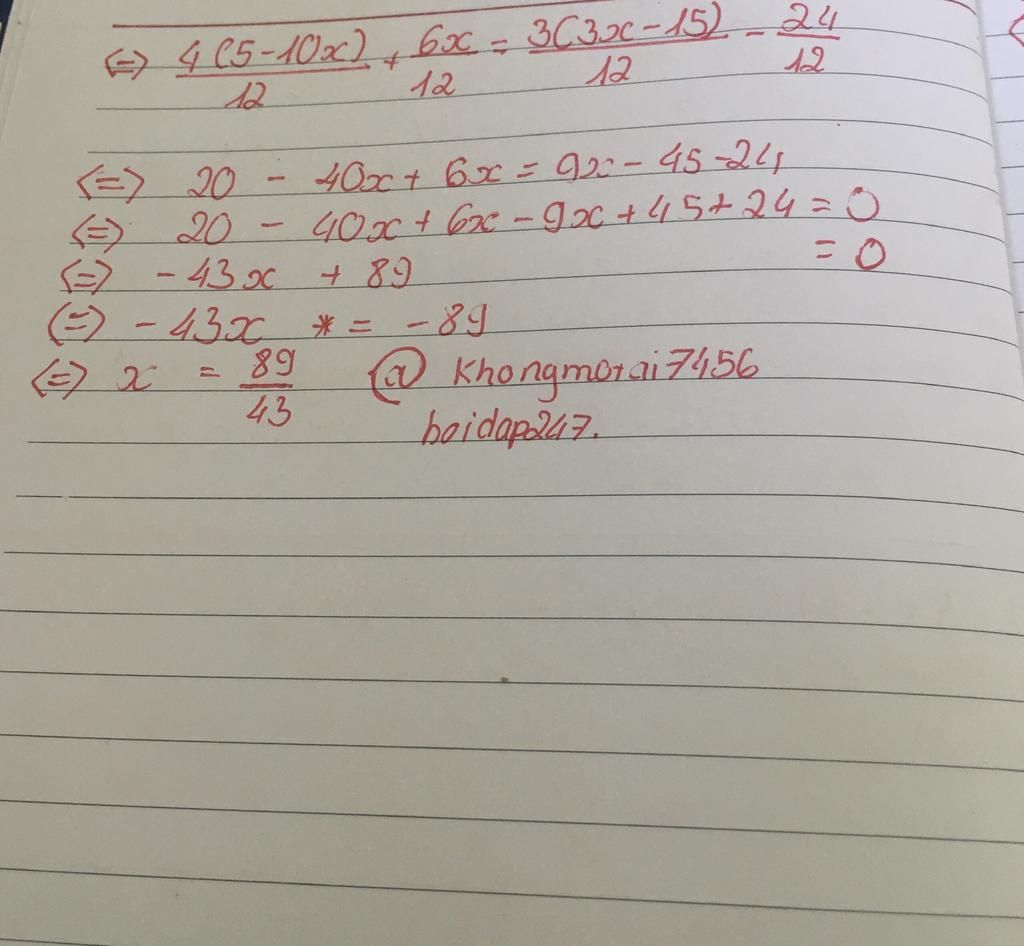 (=) 4(5-10x)/12 + 6x/12 = 3(3x-15)/12 - 24/12
(=) 20 - 40x + 6x = 9x - 45 - 24
(=) 20 - 40x + 6x - 9x + 45 + 24 = 0
(=) - 43x + 89 = 0
(=) - 43x * = - 89
(=) x = 89/43 @ Khongmotai7456
hoidap247.